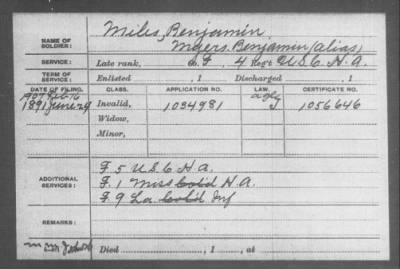 Miles, Benjamin
NAME OF SOLDIER:
Myers, Benjamin (alias)
SERVICE: Late rank, Co F. 4 Regt U.S.C.H.A.
TERM OF SERVICE: Enlisted , 1 Discharged , 1
DATE OF FILING. CLASS. APPLICATION NO. LAW. CERTIFICATE NO.
1907 Feb 16
1891 June 29 Invalid, 1034981 1056646
Widow,
Minor,
ADDITIONAL SERVICES:
F. 5 U.S.C.H.A.
F. 1 Miss Colid H.A.
F. 9 La Colid Inf
REMARKS:
Died , 1 , at